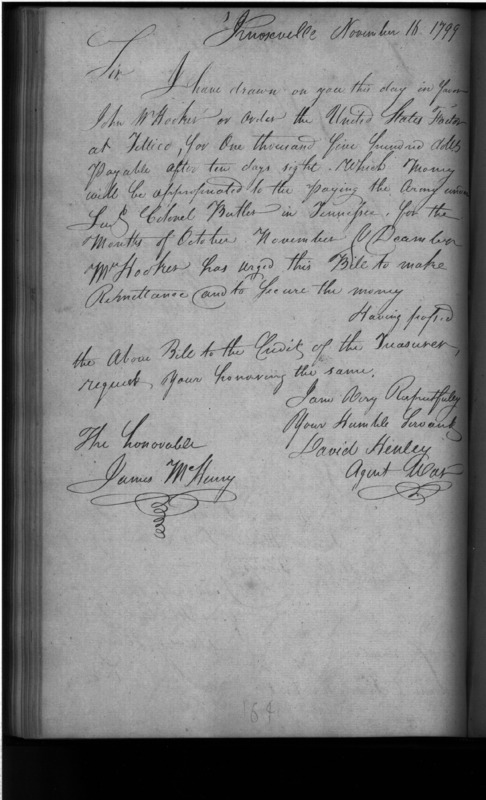 Knoxville November 18 1799
Sir
I have drawn on you this day in favor
John W Hooker or order the United States Factor
at Tellico, for One thousand five hundred dolls
Payable after ten days sight. Which Money
will be appropriated to the paying the Army under
Lut Colonel Butler in Tennessee, for the
Months of October November & December
Mr Hooker has urged this Bill to make
Remittance and to secure the money
Having passed
the Above Bill to the Credit of the Treasurer,
request Your honoring the same.
I am Very Respectfully
Your Humble Servant
David Henley
Agent War
The honorable
James McHenry
184